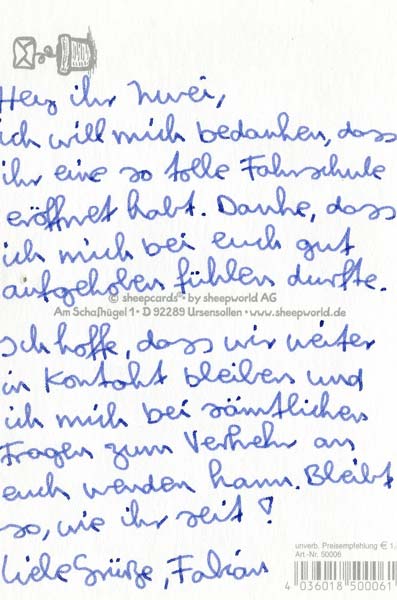 Hey ihr zwei,
ich will mich bedanken, dass
ihr eine so tolle Fahrschule
eröffnet habt. Danke, dass
ich mich bei euch gut
aufgehoben fühlen durfte.
© sheepcards® • by sheepworld AG
Am Schafhügel 1 • D 92289 Ursensollen • www.sheepworld.de
Ich hoffe, dass wir weiter
in Kontakt bleiben und
ich mich bei sämtlichen
Fragen zum Verkehr an
euch wenden kann. Bleibt
so, wie ihr seit!
Liebe Grüße, Fabian
unverb. Preisempfehlung € 1,
Art.-Nr. 50006
4 036018 500061